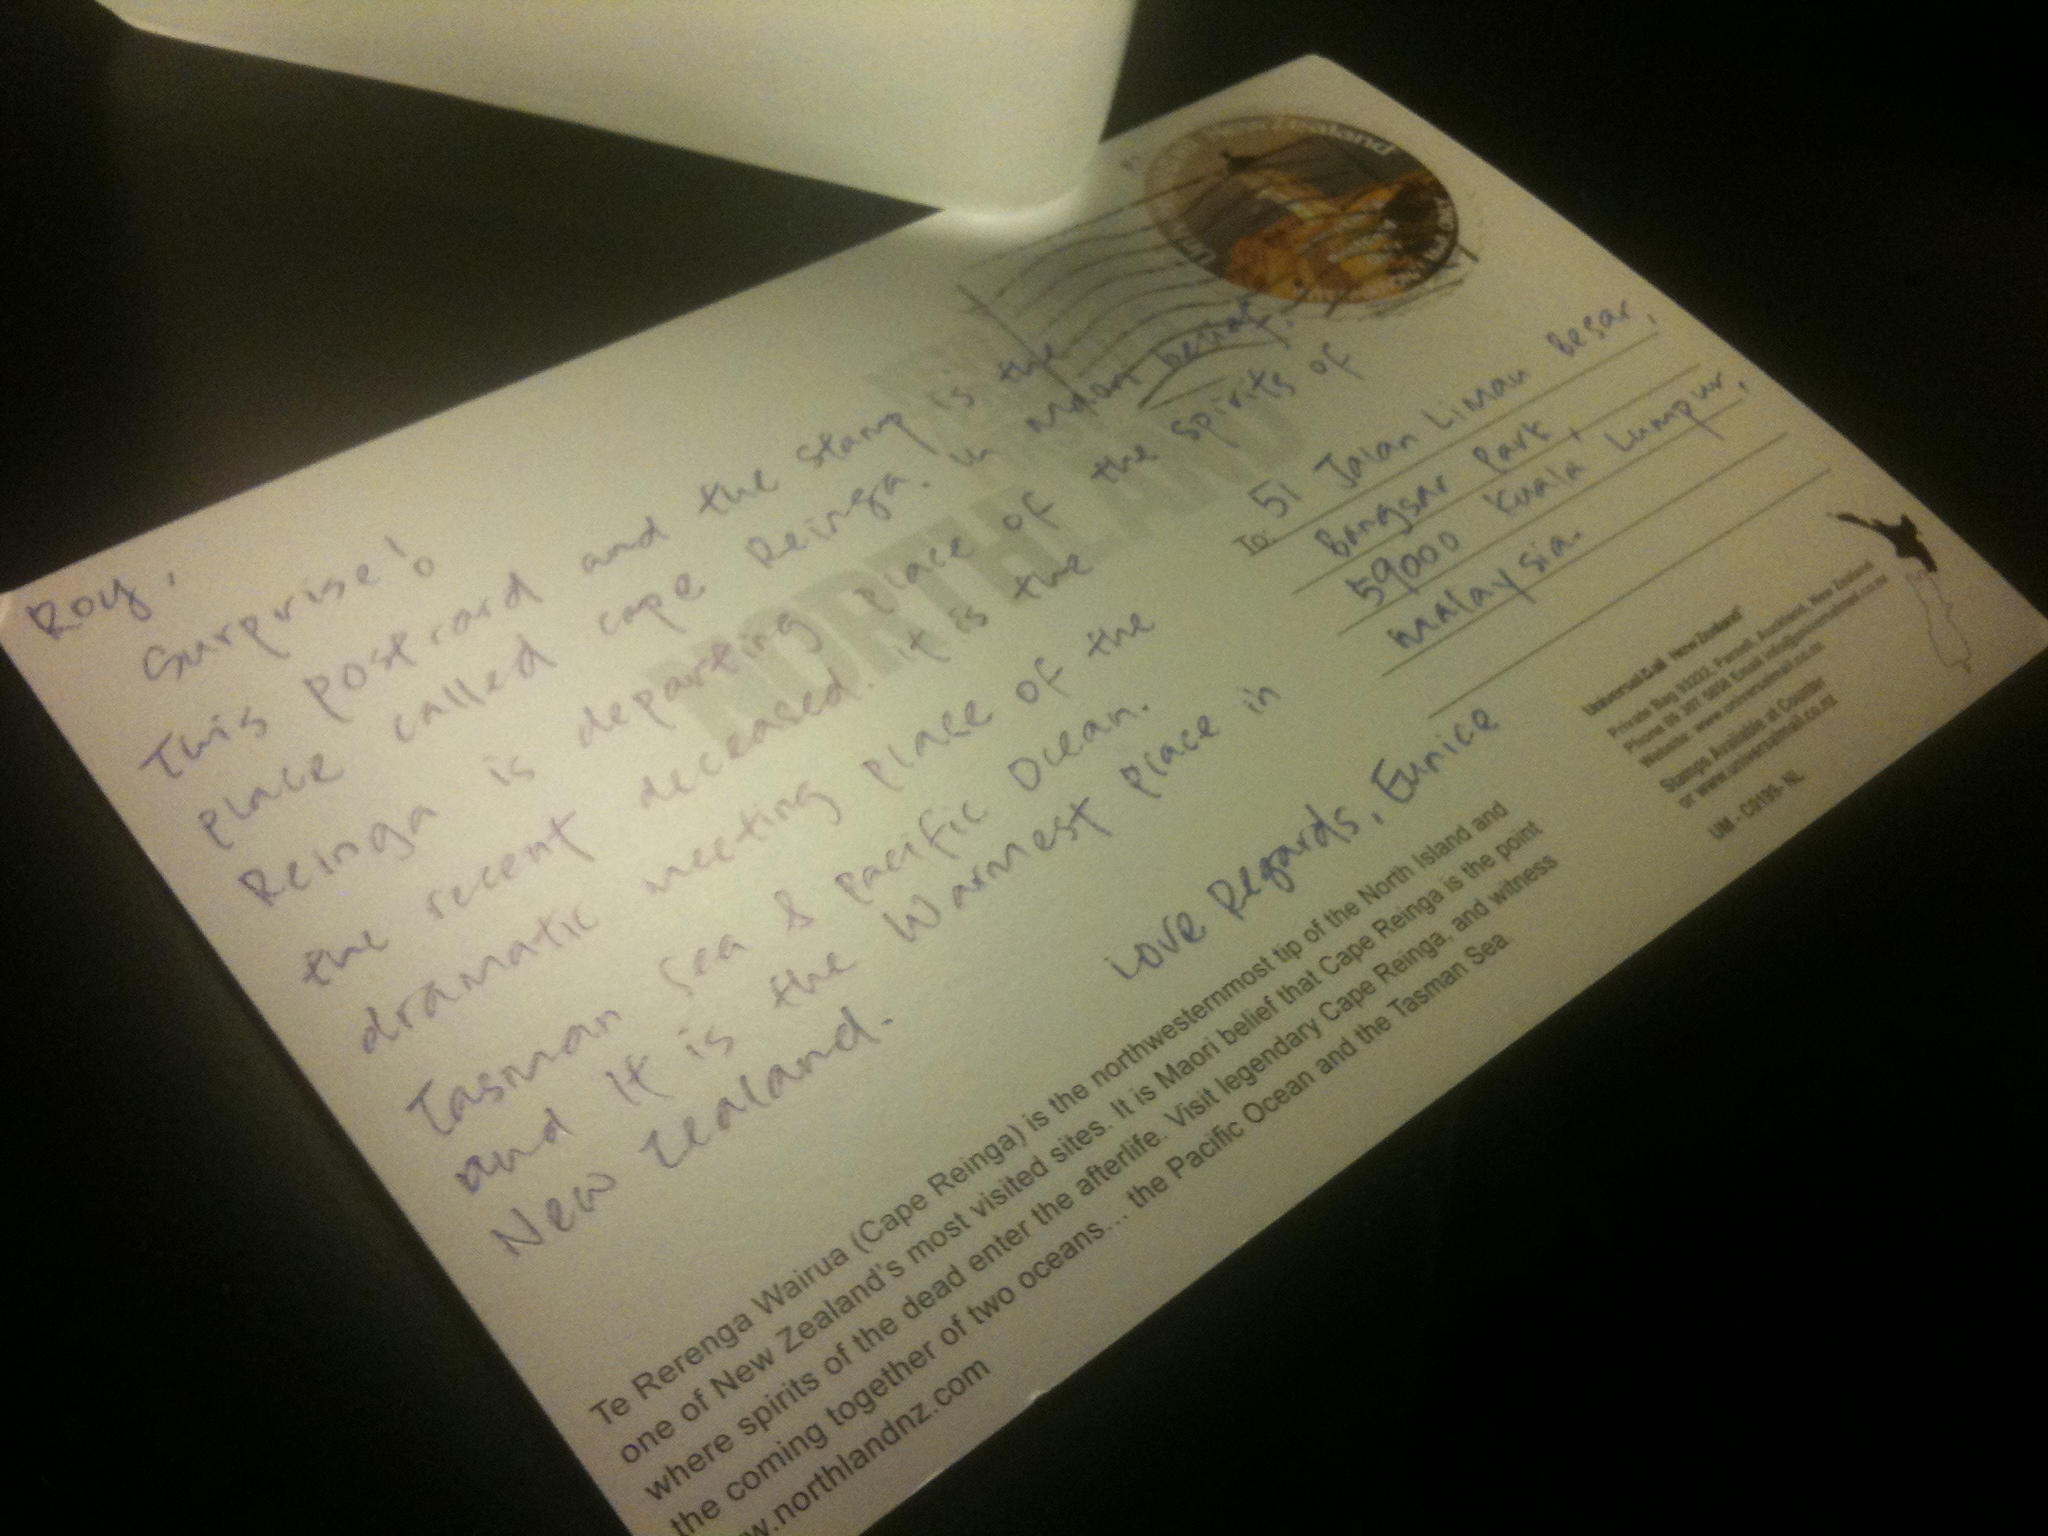 Roy,
Surprise!
This postcard and the stamp is the
place called cape Reinga. In Maori belief,
Reinga is departing place of the spirits of
the recent deceased. it is the
dramatic meeting place of the
Tasman Sea & Pacific Ocean.
and It is the Warmest place in
New Zealand.
Love Regards, Eunice
New Zealand
NORTHLAND
To: 51 Jalan Liman Besar,
Bangsar Park,
59000 Kuala Lumpur,
Malaysia.
Universal Mail New Zealand
Private Bag 93222, Parnell, Auckland, New Zealand
Website: www.universalmail.co.nz
Stamps Available at Counter
or www.universalmail.co.nz
UM - C0196- NL
Te Rerenga Wairua (Cape Reinga) is the northwesternmost tip of the North Island and
one of New Zealand's most visited sites. It is Maori belief that Cape Reinga is the point
where spirits of the dead enter the afterlife. Visit legendary Cape Reinga, and witness
the coming together of two oceans... the Pacific Ocean and the Tasman Sea
w.northlandnz.com